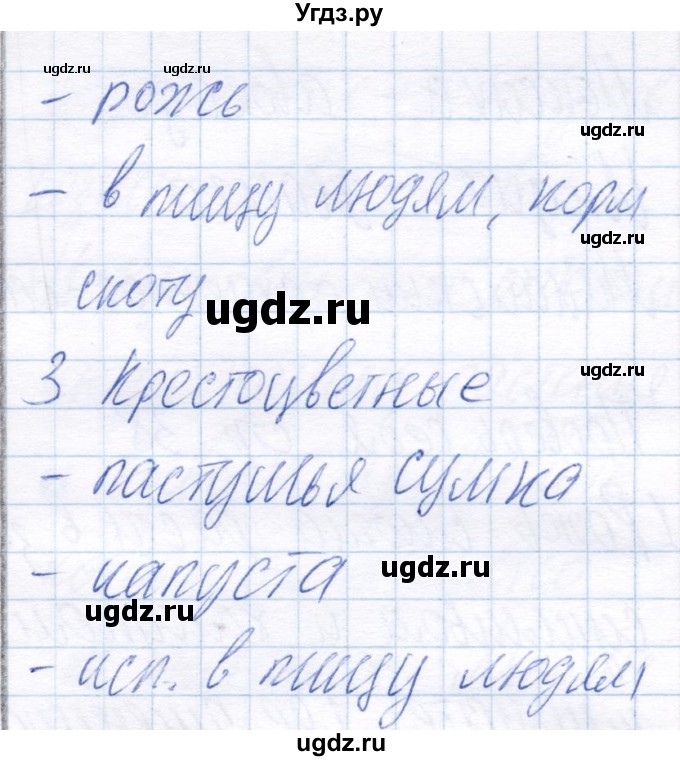 Угдз.ру
ugdz.ru ugdz.ru
- рожь
ugdz.ru
- в пищу людям, корм
ugdz.ru
скоту
ugdz.ru
3 Крестоцветные
ugdz.ru
- пастушья сумка
- капуста
ugdz.ru
ugdz.ru
- исп. в пищу людям
ugdz.ru